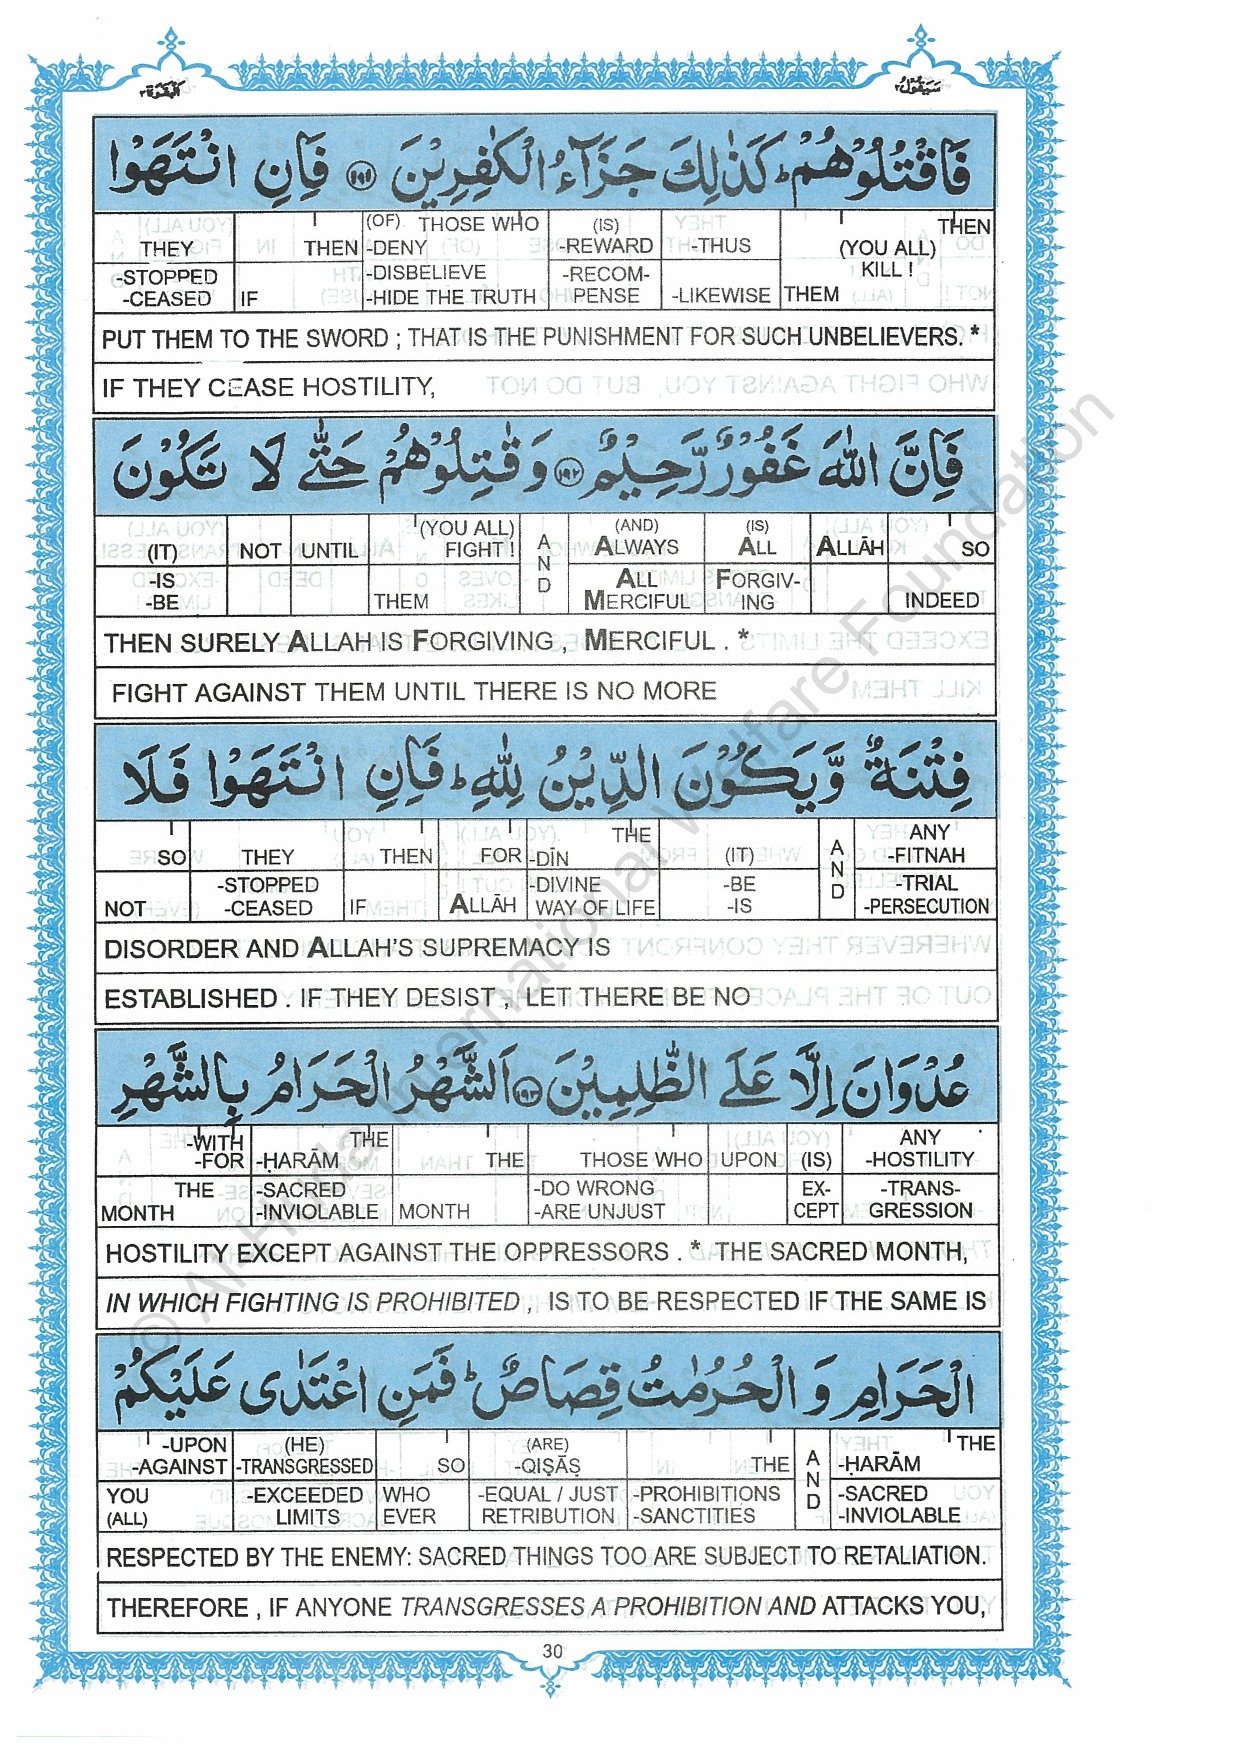 البقرة ٢
سَيَقُولُ ٢
فَاقْتُلُوْهُمْ ؕ كَذٰلِكَ جَزَآءُ الْكٰفِرِيْنَ ۝۱۹۱ فَاِنِ انْتَهَوْا
THEY THEN (OF) THOSE WHO -DENY (IS) -REWARD -THUS (YOU ALL) KILL ! THEN
-STOPPED -CEASED IF -DISBELIEVE -HIDE THE TRUTH -RECOM- PENSE -LIKEWISE THEM
PUT THEM TO THE SWORD ; THAT IS THE PUNISHMENT FOR SUCH UNBELIEVERS. *
IF THEY CEASE HOSTILITY,
فَاِنَّ اللّٰهَ غَفُوْرٌ رَّحِيْمٌ ۝۱۹۲ وَقٰتِلُوْهُمْ حَتّٰى لَا تَكُوْنَ
(IT) NOT UNTIL (YOU ALL) FIGHT ! AND (AND) ALWAYS (IS) ALL ALLĀH SO
-IS -BE THEM ALL MERCIFUL FORGIV- ING INDEED
THEN SURELY ALLAH IS FORGIVING , MERCIFUL . *
FIGHT AGAINST THEM UNTIL THERE IS NO MORE
فِتْنَةٌ وَّيَكُوْنَ الدِّيْنُ لِلّٰهِ ؕ فَاِنِ انْتَهَوْا فَلَا
SO THEY THEN FOR THE -DĪN (IT) AND ANY -FITNAH
NOT -STOPPED -CEASED IF ALLĀH -DIVINE WAY OF LIFE -BE -IS -TRIAL -PERSECUTION
DISORDER AND ALLAH'S SUPREMACY IS
ESTABLISHED . IF THEY DESIST , LET THERE BE NO
عُدْوَانَ اِلَّا عَلَى الظّٰلِمِيْنَ ۝۱۹۳ اَلشَّهْرُ الْحَرَامُ بِالشَّهْرِ
-WITH -FOR THE -ḤARĀM THE THOSE WHO UPON (IS) ANY -HOSTILITY
THE MONTH -SACRED -INVIOLABLE MONTH -DO WRONG -ARE UNJUST EX- CEPT -TRANS- GRESSION
HOSTILITY EXCEPT AGAINST THE OPPRESSORS . * THE SACRED MONTH,
IN WHICH FIGHTING IS PROHIBITED , IS TO BE RESPECTED IF THE SAME IS
الْحَرَامِ وَ الْحُرُمٰتُ قِصَاصٌ ؕ فَمَنِ اعْتَدٰى عَلَيْكُمْ
-UPON -AGAINST (HE) -TRANSGRESSED SO (ARE) -QIṢĀṢ THE AND THE -ḤARĀM
YOU (ALL) -EXCEEDED LIMITS WHO EVER -EQUAL / JUST RETRIBUTION -PROHIBITIONS -SANCTITIES -SACRED -INVIOLABLE
RESPECTED BY THE ENEMY: SACRED THINGS TOO ARE SUBJECT TO RETALIATION.
THEREFORE , IF ANYONE TRANSGRESSES A PROHIBITION AND ATTACKS YOU,
30
© Al-Huda International Welfare Foundation